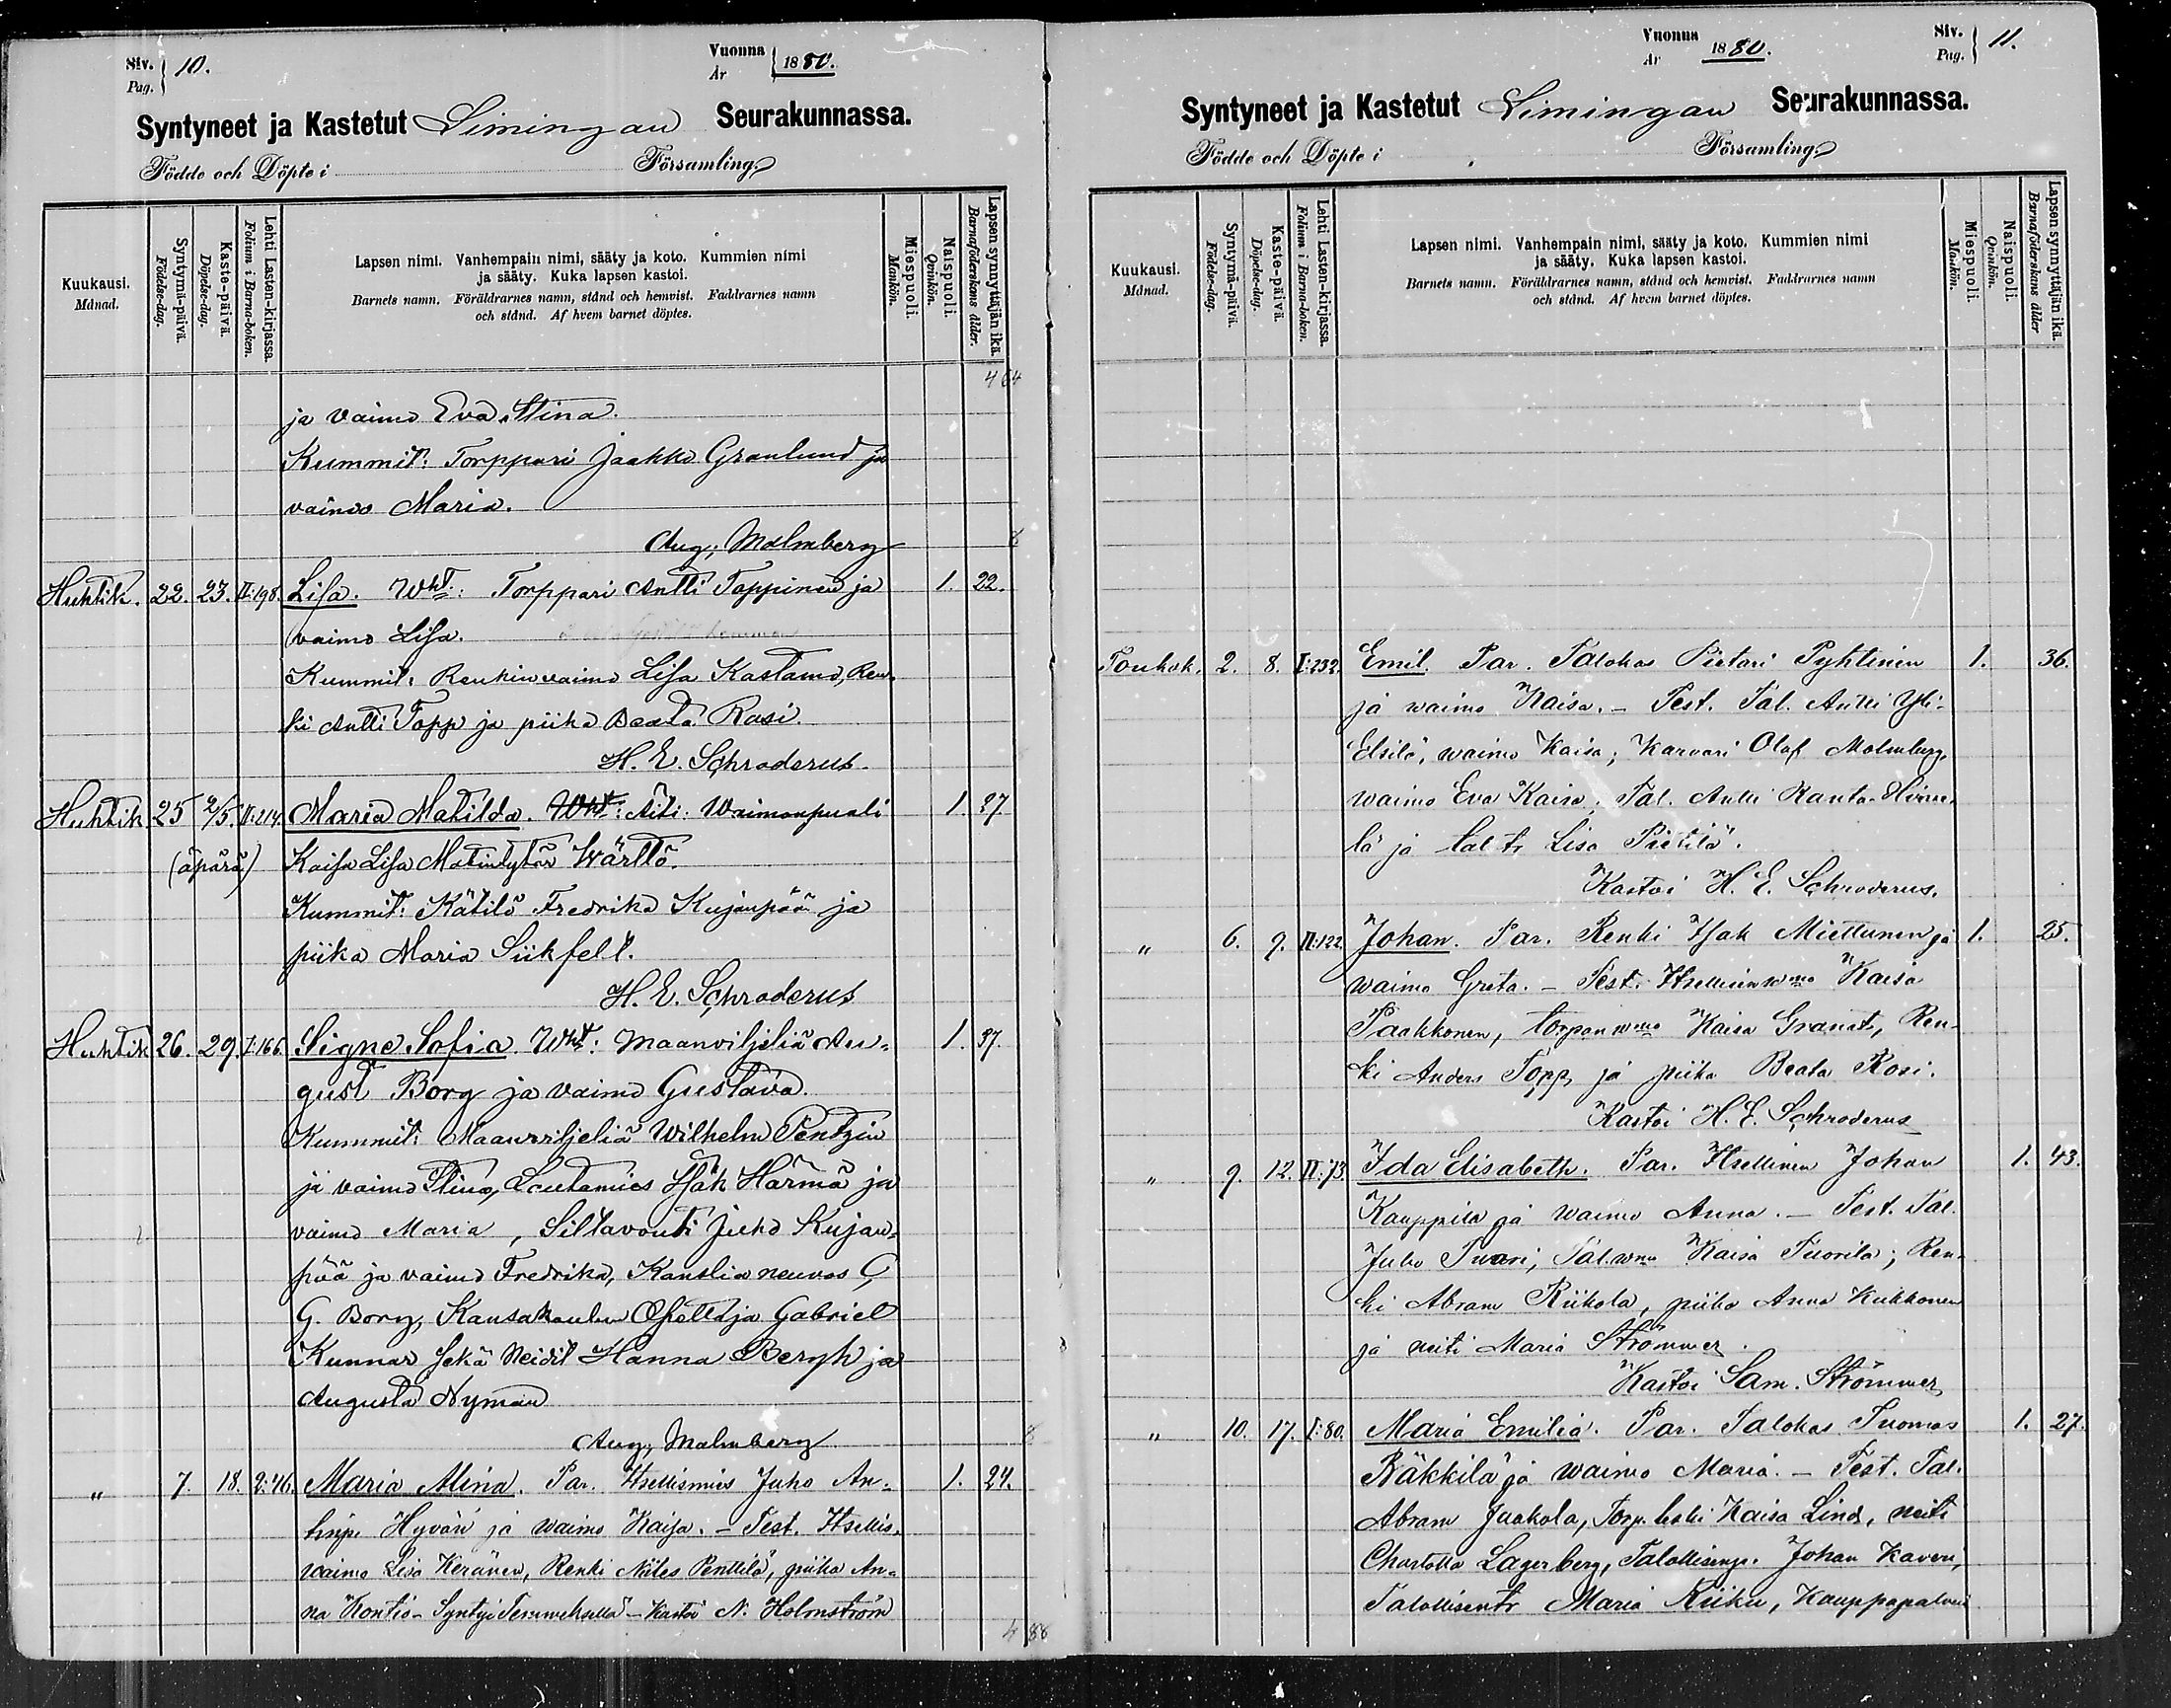 Siv. 10.
Pag.
Vuonna 1880.
År
Syntyneet ja Kastetut Limingan Seurakunnassa.
Födde och Döpte i Församling
Kuukausi.
Månad.
Syntymä-päivä.
Födelse-dag.
Kaste-päivä.
Döpelse-dag.
Lehti Lasten-kirjassa.
Folium i Barna-boken.
Lapsen nimi. Vanhempain nimi, sääty ja koto. Kummien nimi
ja sääty. Kuka lapsen kastoi.
Barnets namn. Föräldrarnes namn, stånd och hemvist. Faddrarnes namn
och stånd. Af hvem barnet döptes.
Miespuoli.
Mankön.
Naispuoli.
Qvinkön.
Lapsen synnyttäjän ikä.
Barnaföderskans ålder.
464
ja vaimo Eva Stina.
Kummit: Torppari Jaakko Granlund ja
vaimo Maria.
Aug. Malmberg
Huhtik. 22. 23. II:198. Lisa. Wht: Torppari Antti Toppinen ja 1. 22.
vaimo Lisa.
Kummit: Renkinvaimo Lisa Kastamo, Ren-
ki Antti Topp ja piika Beata Rosi.
H. E. Schroderus.
Huhtik 25 2/5. II:214. Maria Matilda. Wht: Äiti: Waimonpuoli 1. 27.
(äpärä) Kaisa Lisa Matintytär Wärttö.
Kummit: Kätilö Fredrika Kujanpää ja
piika Maria Siikfelt.
H. E. Schroderus
Huhtik 26. 29. I:166. Signe Sofia. Wht: Maanviljeliä Au- 1. 37.
gust Borg ja vaimo Gustava.
Kummit: Maanviljeliä Wilhelm Pentzin
ja vaimo Stina, Lautamies Isak Härmä ja
vaimo Maria, Siltavouti Juho Kujan-
pää ja vaimo Fredrika, Kanslianeuvos C.
G. Borg, Kansakoulun Opettaja Gabriel
Kunnar sekä Neidit Hanna Bergh ja
Augusta Nyman
Aug. Malmberg
" 7. 18. 2:46. Maria Mina. Par. Itsellismies Juho An- 1. 24.
Hyväri ja waimo Kaisa. - Test. Itsellis.
waimo Lisa Keränen, Renki Niiles Penttilä, piika An-
na Kontio - Syntyi Temmeksellä - Kastoi N. Holmström
488
Vuonna 1880.
År
Siv. 11.
Pag.
Syntyneet ja Kastetut Limingan Seurakunnassa.
Födde och Döpte i Församling
Kuukausi.
Månad.
Syntymä-päivä.
Födelse-dag.
Kaste-päivä.
Döpelse-dag.
Lehti Lasten-kirjassa.
Folium i Barna-boken.
Lapsen nimi. Vanhempain nimi, sääty ja koto. Kummien nimi
ja sääty. Kuka lapsen kastoi.
Barnets namn. Föräldrarnes namn, stånd och hemvist. Faddrarnes namn
och stånd. Af hvem barnet döptes.
Miespuoli.
Mankön.
Naispuoli.
Qvinkön.
Lapsen synnyttäjän ikä.
Barnaföderskans ålder
Toukok. 2. 8. I:232. Emil. Par. Talokas Pietari Pyhtinen 1. 36.
ja waimo Kaisa. - Test. Tal. Antti Yli-
Elsilä, waimo Kaisa; Karvari Olof Malmberg,
waimo Eva Kaisa; Tal. Antti Ranta-
lä ja tal. tr Lisa Pietilä.
Kastoi H. E. Schroderus.
" 6. 9. II:122 Johan. Par. Renki Isak Miettunen ja 1. 25.
waimo Greta. - Test. Itsellisenwmo Kaisa
Paakkonen, torpan wmo Kaisa Granat, Ren-
ki Anders Topp, ja piika Beata Rosi.
Kastoi H. E. Schroderus
" 9. 12. II:73 Ida Elisabeth. Par. Itsellinen Johan 1. 43.
Kauppila ja waimo Anna. - Test. Tal.
Juho Tuori; Tal. wmo Kaisa Tuorila; Ren-
ki Abram Riikola, piika Anna Kukkonen
ja neiti Maria Strömmer.
Kastoi Sam. Strömmer
" 10. 17. I:80. Maria Emilia. Par. Talokas Tuomas 1. 27.
Räkkilä ja waimo Maria. - Test. Tal.
Abram Jaakola, Torp. leski Kaisa Lind, neiti
Charlotta Lagerberg, Talollisenp. Johan Kaveri,
Talollisentr Maria Riiku, Kauppapalvelia